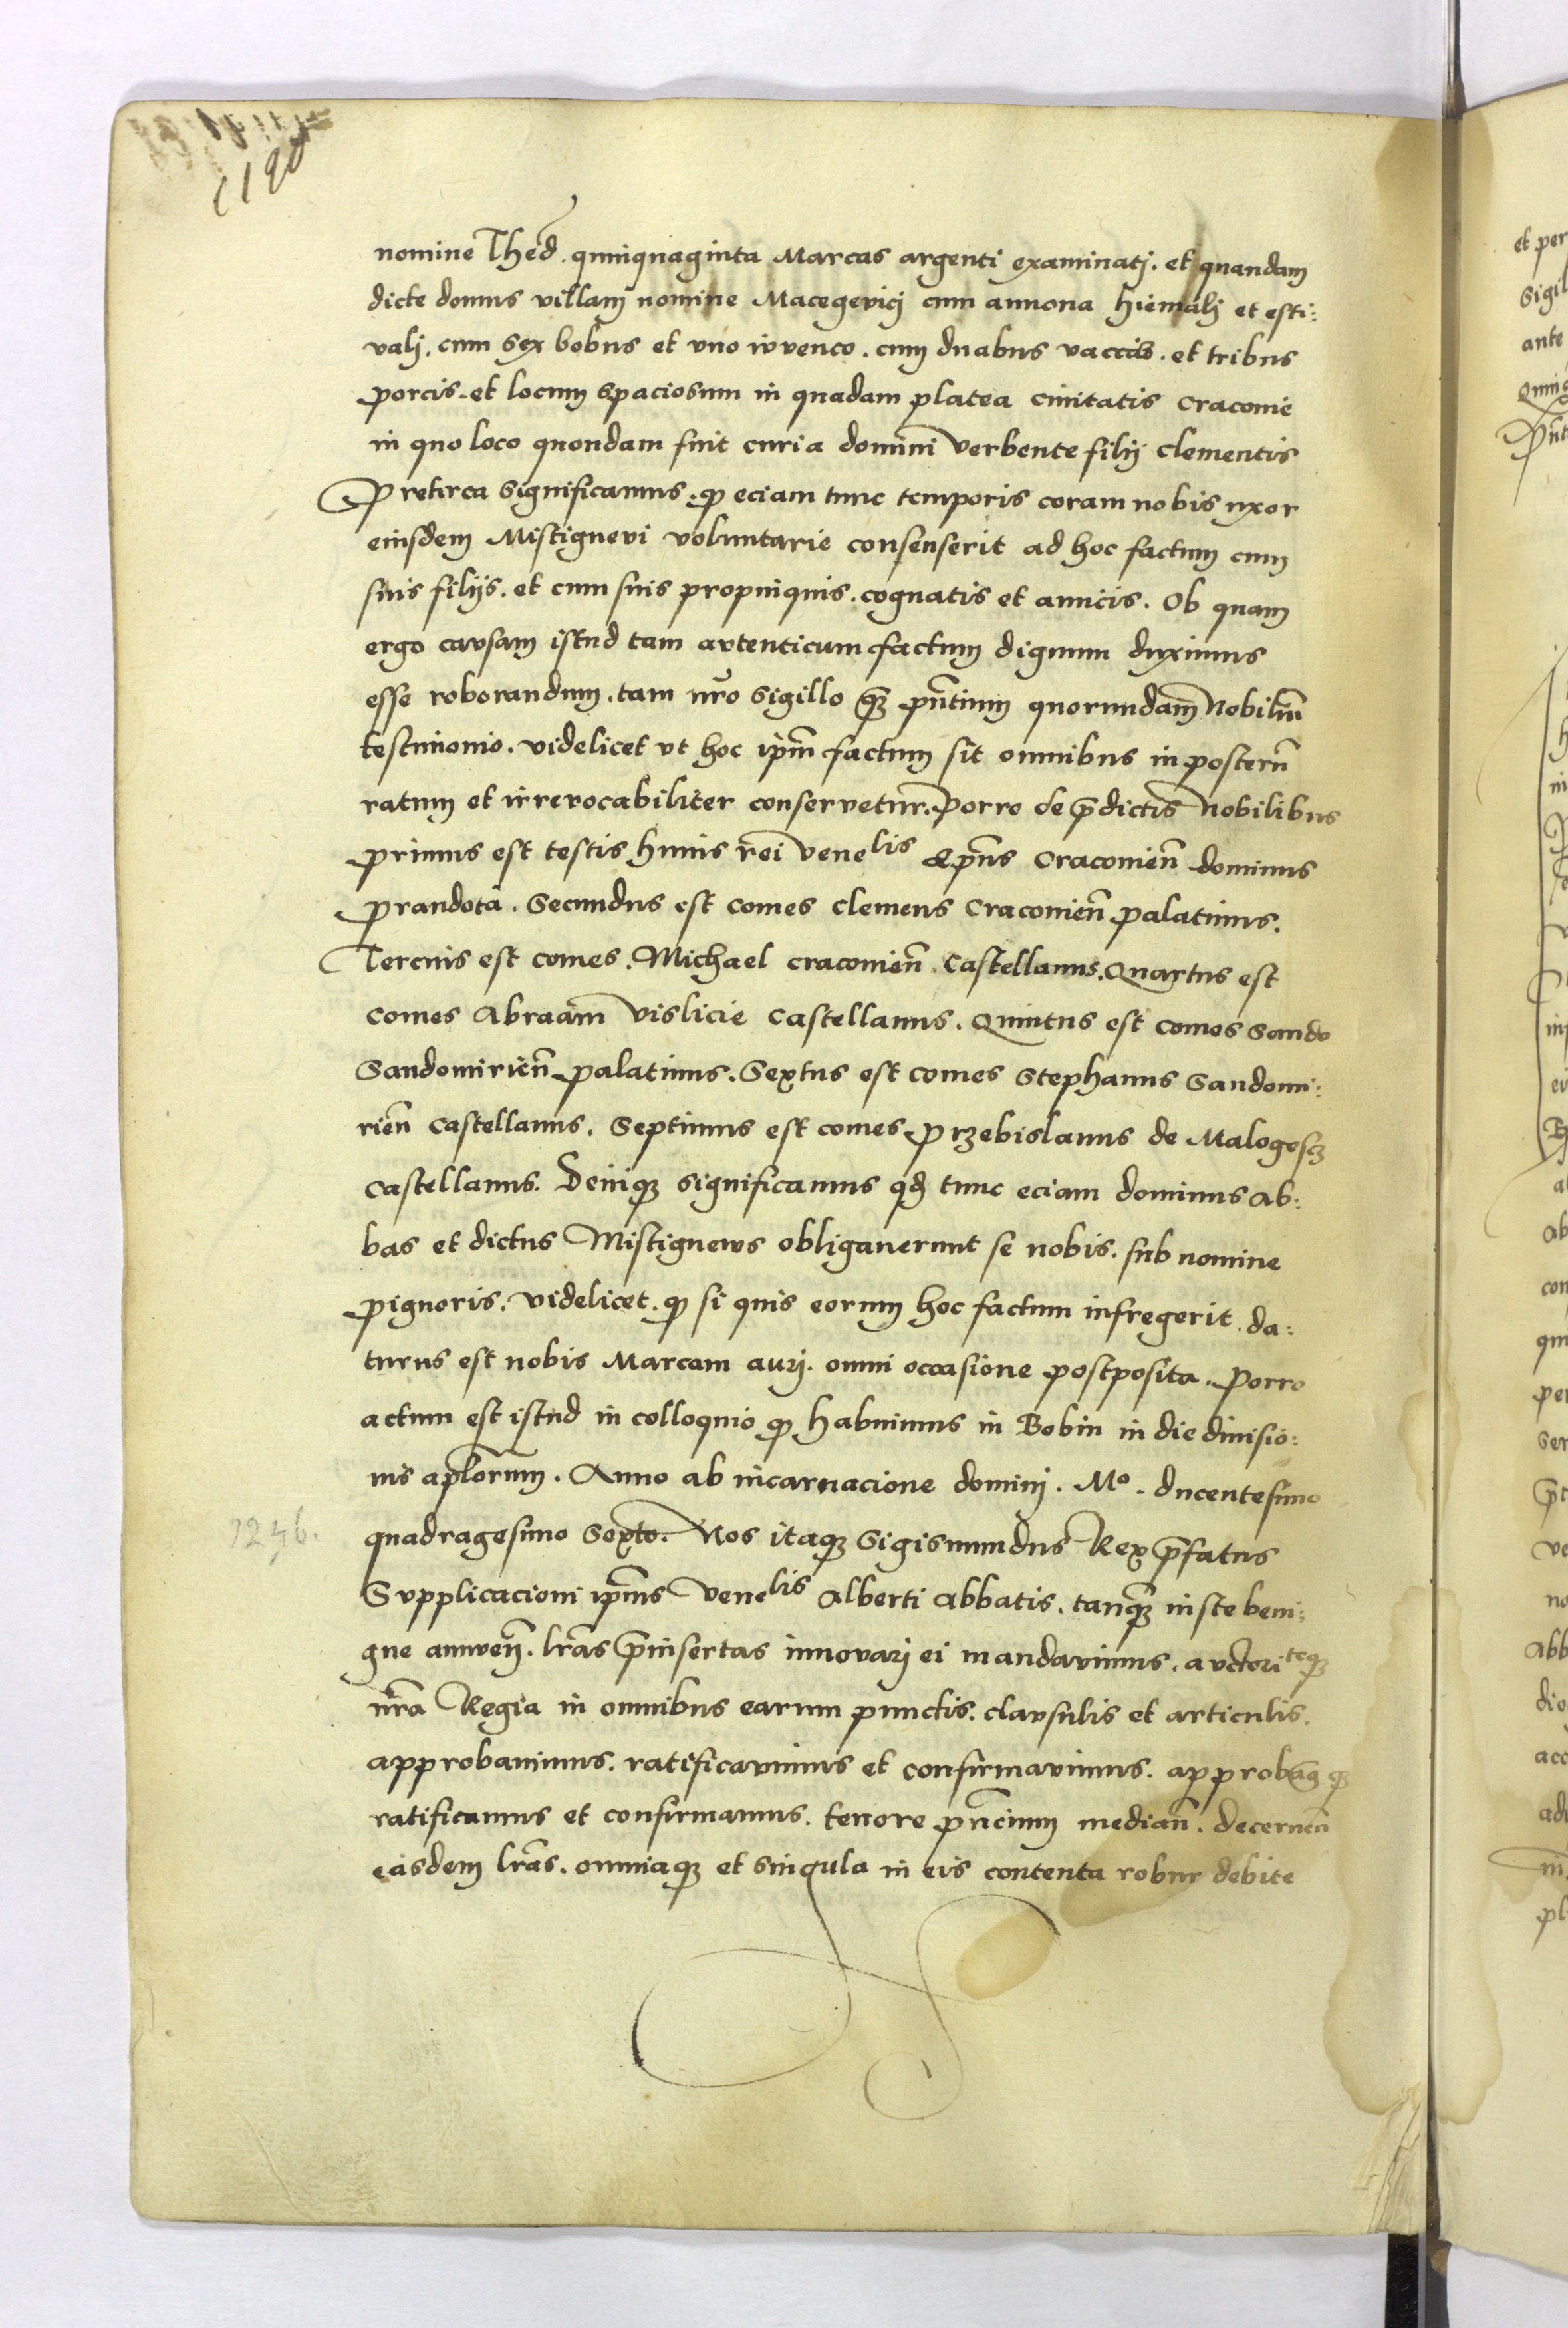 1190
nomine Thed̃. quinquaginta Marcas argenti examinatj. et quandam
dicte domus villam nomine Macegevicj cum annona hiemalj et esti:
valj. cum sex bobus et vno ivvenco. cum duabus vaccis. et tribus
porcis. et locum spaciosum in quadam platea ciuitatis Cracouie
in quo loco quondam fuit curia domini Verbente filij Clementis
Preterea significamus. ꝙ eciam tunc temporis coram nobis vxor
eiusdem Mistignevi voluntarie consenserit ad hoc factum cum
suis filijs. et cum suis propinquis. cognatis et amicis. Ob quam
ergo cavsam istud tam avtenticum factum dignum duximus
esse roborandum. tam nr̃o sigillo qȝ pñtium quorundam̃ Nobiliũ
testimonio. videlicet vt hoc ip̃m factum sit omnibus in posterũ
ratum et irrevocabiliter conservetur. Porro de p̃dictis Nobilibus
primus est testis huius rei Venelis Ep̃us Cracouieñ dominus
Prandota. Secundus est Comes Clemens Cracouieñ palatinus.
Tercius est comes. Michael Cracouieñ. Castellanus. Quartus est
comes Abraam Vislicie Castellanus. Quintus est comes Sando
Sandomirieñ palatinus. Sextus est comes Stephanus Sandomi:
rieñ Castellanus. Septimus est comes Przebislaus de Malogosȝ
Castellanus. Deniqȝ significamus qđ tunc eciam dominus Ab:
bas et dictus Mistignews obligauerunt se nobis. sub nomine
pignoris. videlicet. ꝙ si quis eorum hoc factum infregerit. da:
turus est nobis Marcam aurj. omni occasione postposita. Porro
actum est istud in colloquio ꝙ habuimus in Bobin in die diuisio:
nis apl̃orum. Anno ab incarnacione dominj. Mº. ducentesimo
1246.
quadragesimo Sexto. Nos itaqȝ Sigismundus Rex p̃fatus
Svpplicacioni ip̃ius Venelis Alberti Abbatis. tanqȝ iuste beni:
gne annueñ. lr̃as p̃insertas innovarj ei mandavimus. avctoriteqȝ
nr̃a Regia in omnibus earum punctis. clavsulis et articulis.
approbauimus. ratificavimus et confirmavimus. approbamꝰqȝ
ratificamus et confirmamus. tenore pñcium mediañ. decerneñ
easdem lr̃as. omniaqȝ et singula in eis contenta robur debite